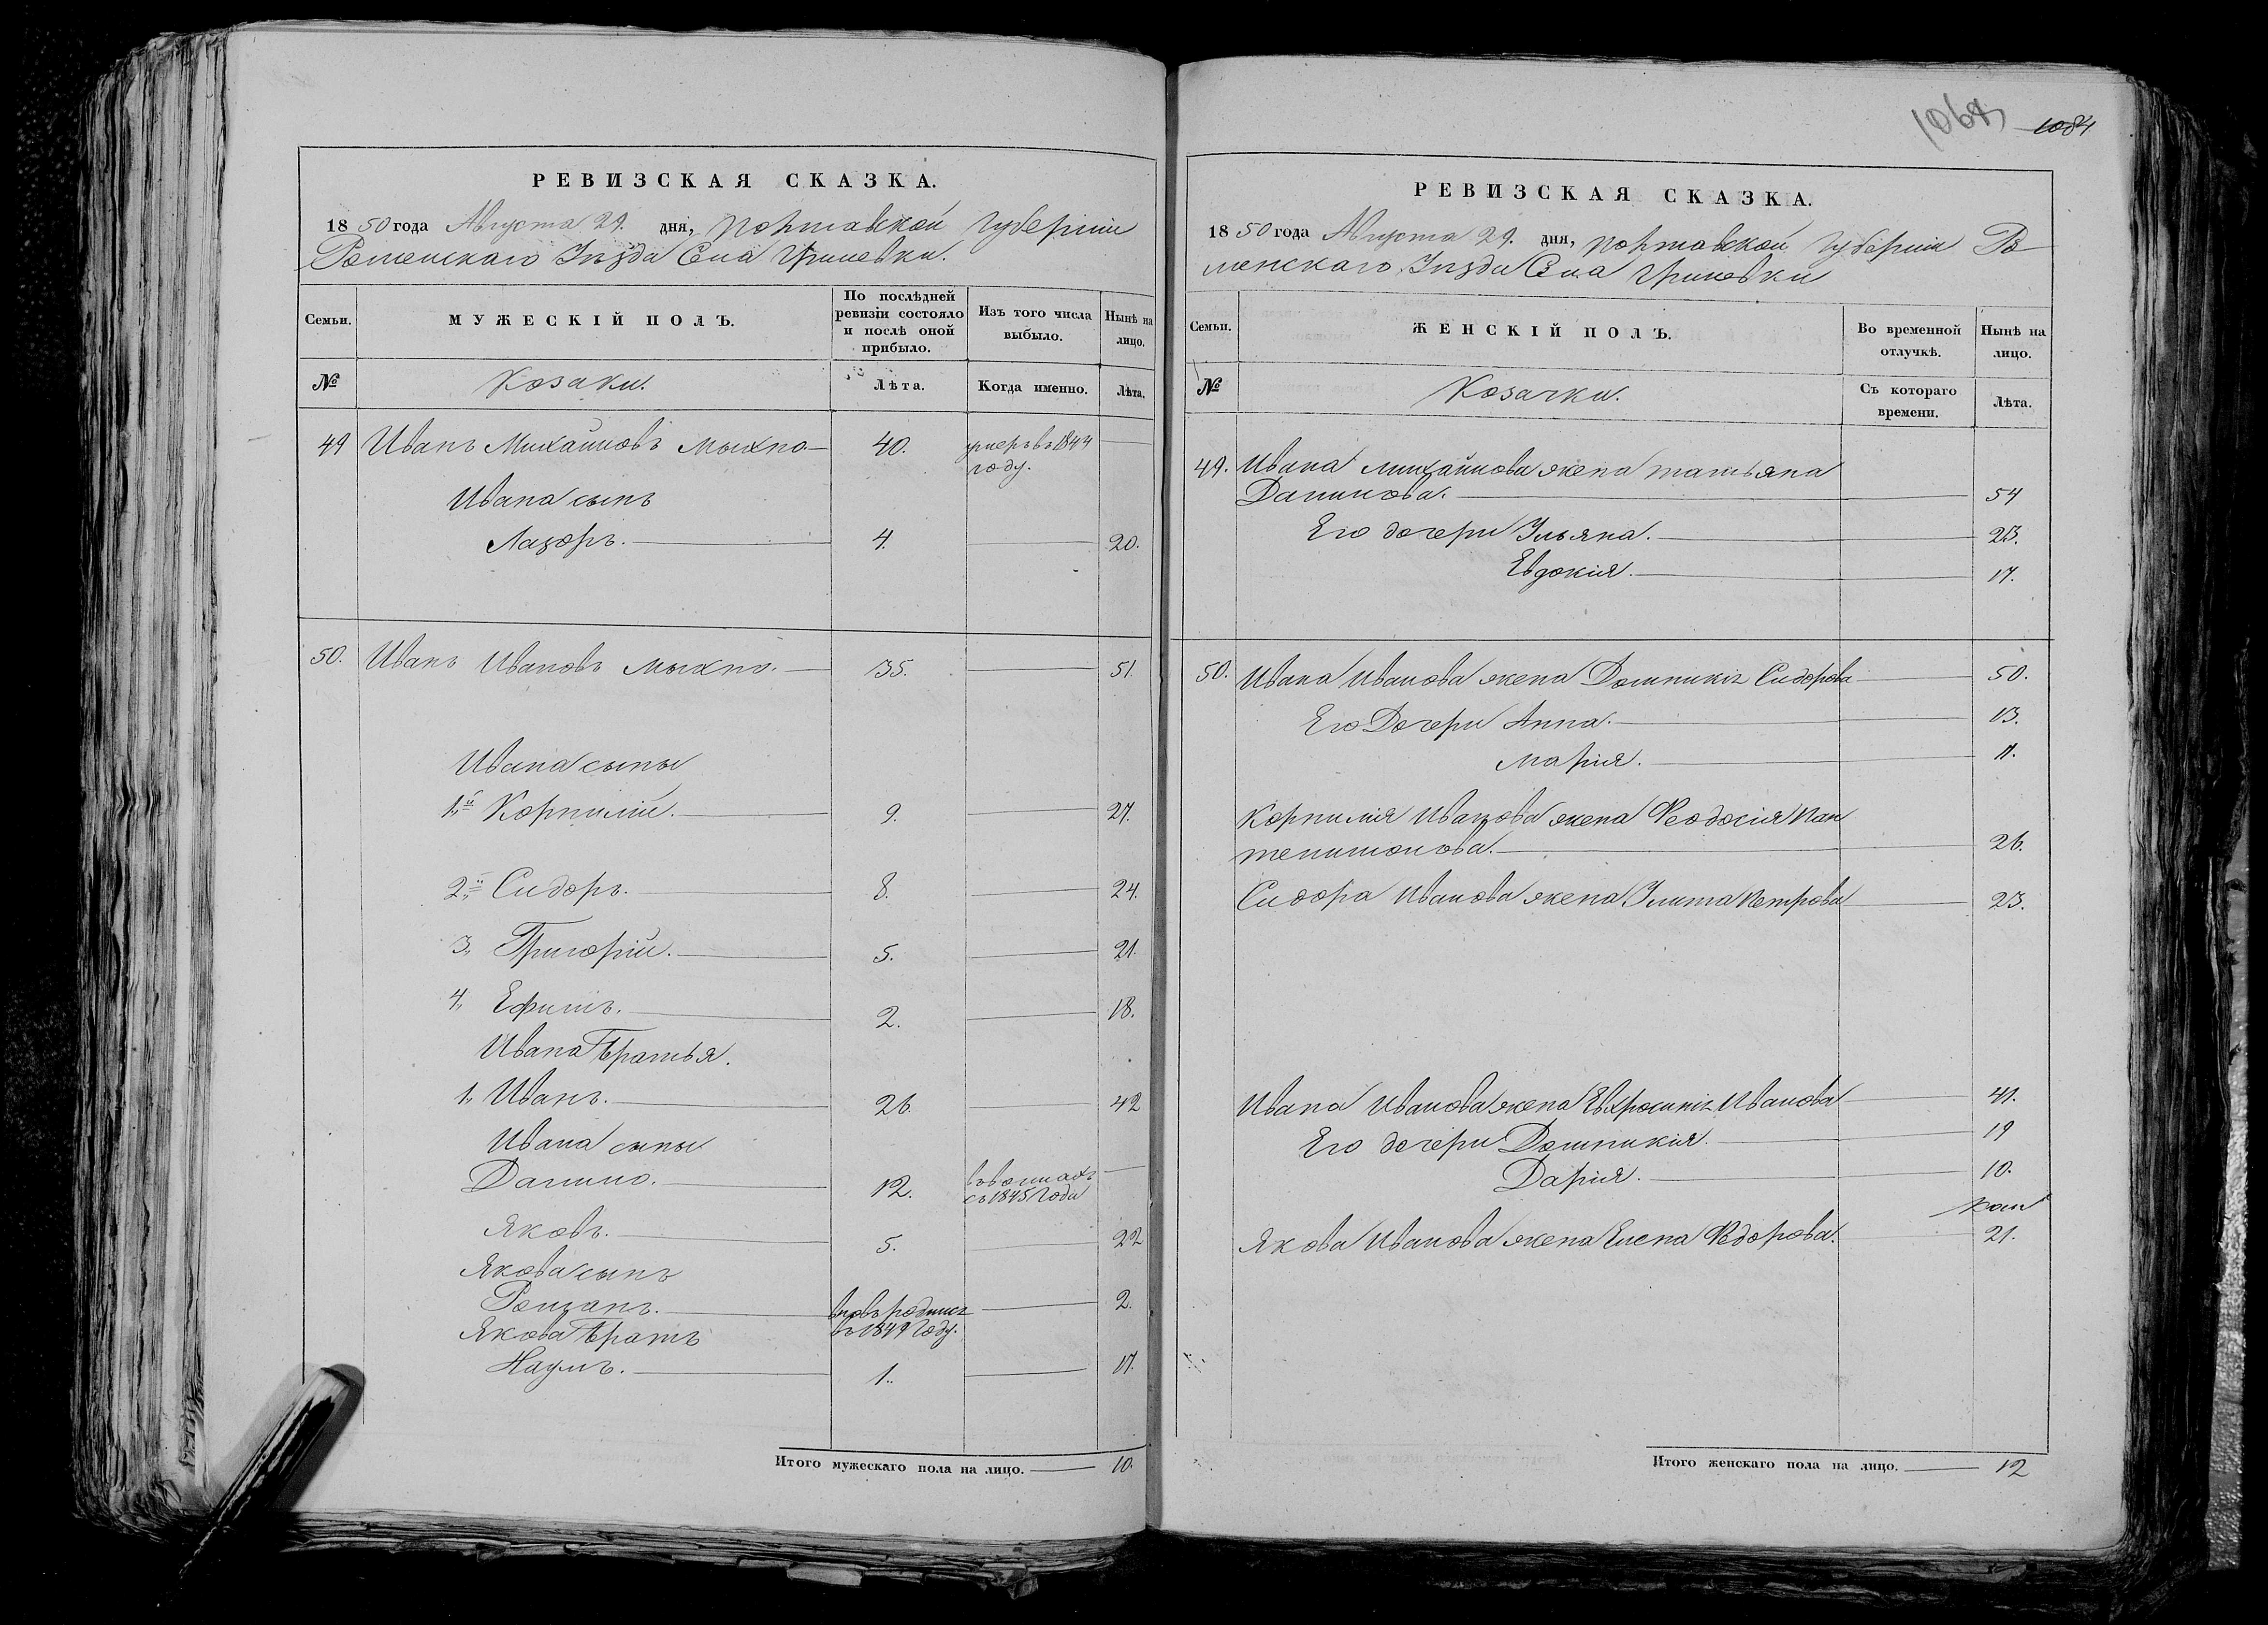 РЕВИЗСКАЯ СКАЗКА.
1850 года Августа 29. дня, Полтавской Губерніи
Роменскаго Уѣзда Села Гриневки.
Семьи.
МУЖЕСКІЙ ПОЛЪ.
По послѣдней ревизіи состояло и послѣ оной прибыло.
Изъ того числа выбыло.
Нынѣ на лицо.
№
Козаки.
Лѣта.
Когда именно.
Лѣта.
49 Иванъ Михайловъ Мыхно 40. умеръ въ 1844
году.
Ивана сынъ
Лазоръ. 4. 20.
50. Иванъ Ивановъ Мыхно. 35. 51.
Ивана сыны
1й Корнилій. 9. 27.
2й Сидоръ. 8. 24.
3. Григорій. 5. 21.
4. Ефимъ. 2. 18.
Ивана братья.
1. Иванъ. 26. 42
Ивана сыны
Данило. 12. съ 1845 года
Яковъ. 5. 22
Якова сынъ
вновь родился 2.
Якова братъ въ 1849 году.
Наумъ. 1. 17.
Итого мужескаго пола на лицо. 10.
1084
РЕВИЗСКАЯ СКАЗКА.
1850 года Августа 29. дня, Полтавской Губерніи Ро
менскаго Уѣзда Села Гриневки
Семьи.
ЖЕНСКІЙ ПОЛЪ.
Во временной отлучкѣ.
Нынѣ на лицо.
№
Козачки.
Съ котораго времени.
Лѣта.
49. Ивана Михайлова жена Татьяна
Данилова. 54
Его дочери Ульяна. 23.
Евдокія. 17.
50. Ивана Иванова жена Домникія Сидорова 50.
Его Дочери Анна. 13.
Марія. 11.
Корнилія Иванова жена Феодосія Пан
телимонова. 26.
Сидора Иванова жена Улита Петрова 23.
Ивана Иванова жена Евфросинія Иванова 41.
Его дочери Домникія. 19
Дарія. 10.
Якова Иванова жена Елена Федорова. 21.
Итого женскаго пола на лицо. 12